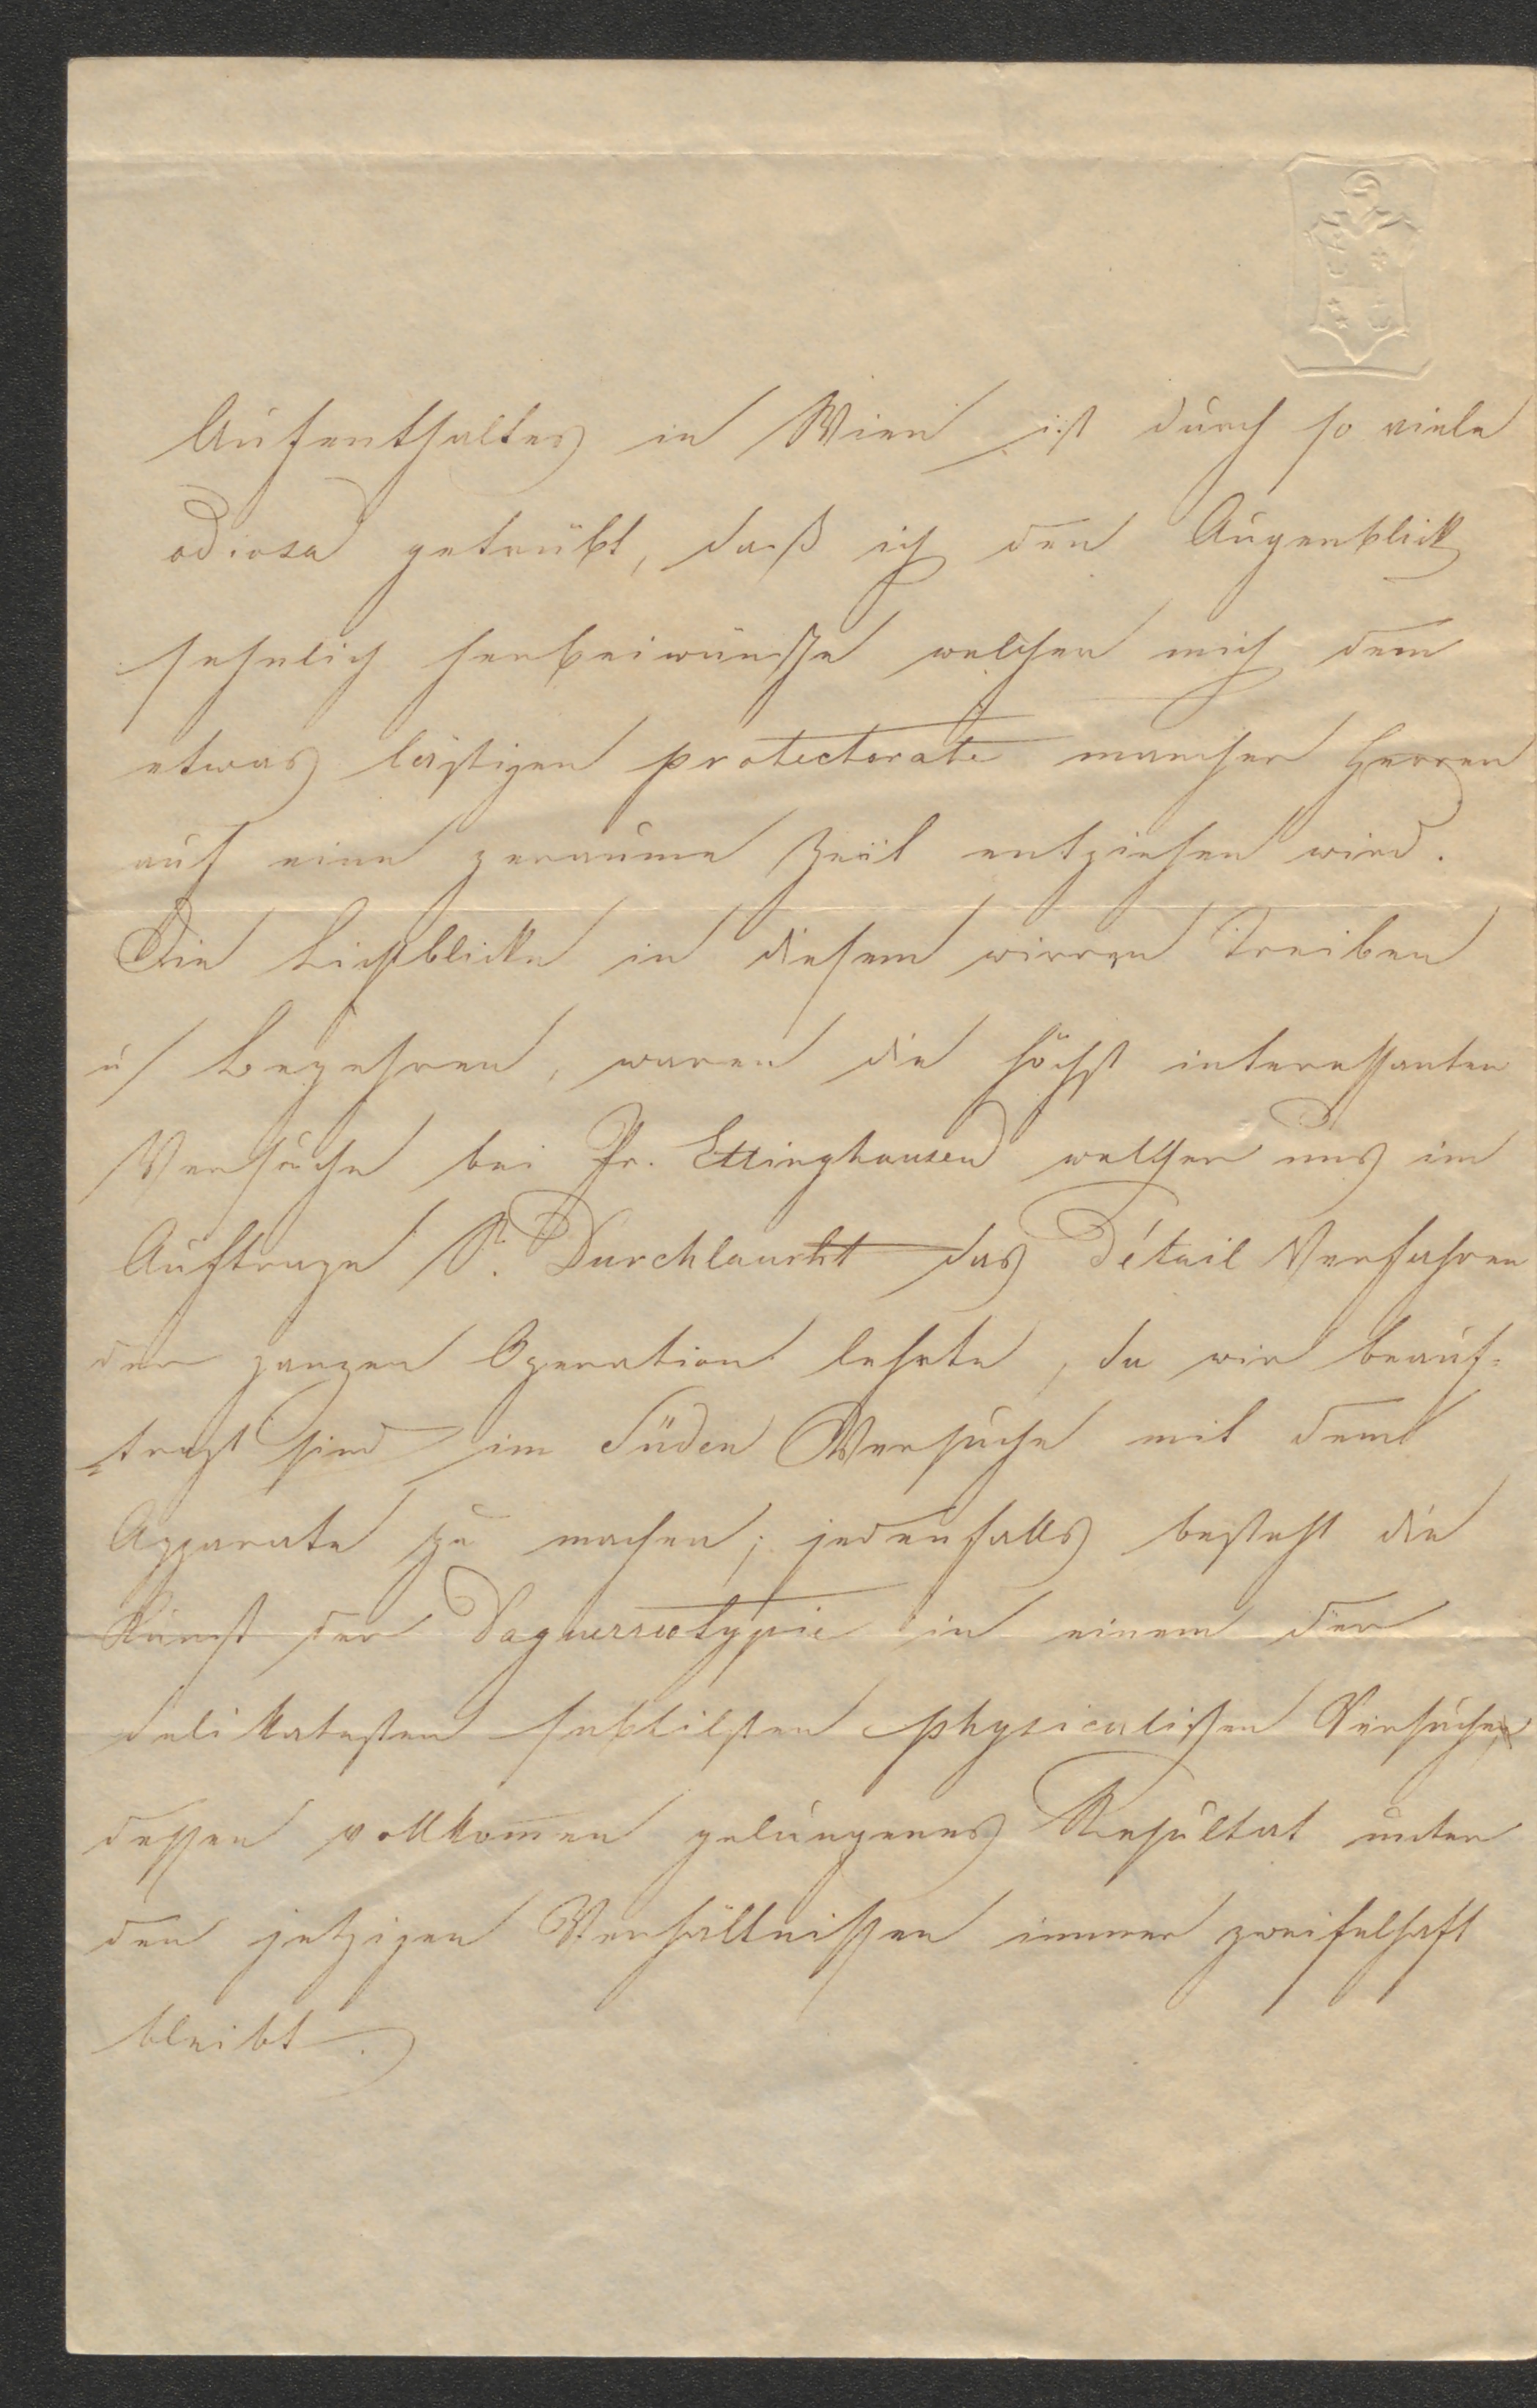 Aufenthaltes in Wien ist durch so viele
odiosa getrübt, daß ich den Augenblick
sehnlich herbeiwünsche welcher mich dem
etwas lästigen protectorate mancher Herren
auf eine geraume Zeit entziehen wird.
Die Lichtblicke in diesem wirren Treiben
u Begehren, waren die höchst interessanten
Versuche bei Pr. Ettinghausen welcher uns im
Auftrage Sr. Durchlaucht das Détail Verfahren
der ganzen Operation lehrte, da wir beauf-
tragt sind im Süden Versuche mit dem
Apparate zu machen; jedenfalls besteht die
Kunst der Daguerreotypie in einem der
delikatesten subtilsten physicalischen Versuche
dessen vollkomen gelungenes Resultat unter
den jetzigen Verhältnissen immer zweifelhaft
bleibt.